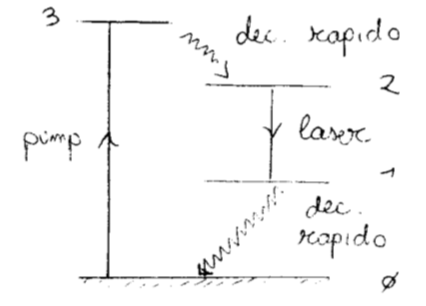 3
dec. rapido
2
pimp
laser
1
dec.
rapido
ø